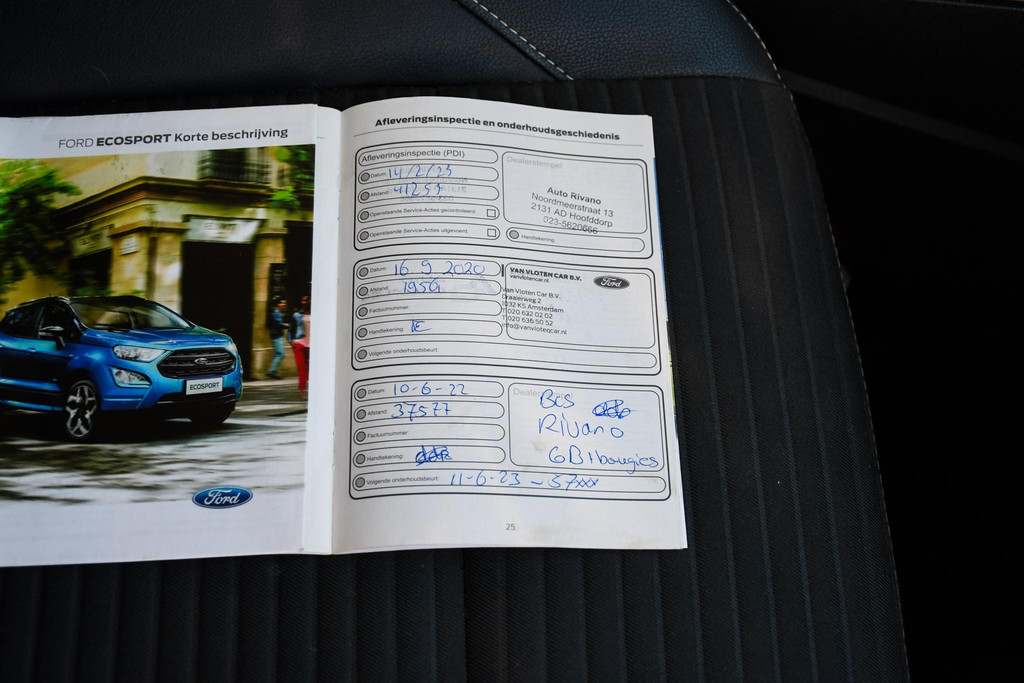 FORD ECOSPORT Korte beschrijving
ECOSPORT
Ford
Afleveringsinspectie en onderhoudsgeschiedenis
Afleveringsinspectie (PDI)
Datum: 14/2/23
Afstand: 41253
Openstaande Service-Acties gecontroleerd:
Openstaande Service-Acties uitgevoerd:
Dealerstempel
Auto Rivano
Noordmeerstraat 13
2131 AD Hoofddorp
023-5620666
Handtekening:
Datum: 16 9 2020
Afstand: 19561
Factuurnummer:
Handtekening:
Volgende onderhoudsbeurt:
VAN VLOTEN CAR B.V.
vanvlotencar.nl
Ford
Van Vloten Car B.V.
Draaierweg 2
1032 KS Amsterdam
T 020 632 02 02
T 020 636 50 52
info@vanvlotencar.nl
Datum: 10-6-22
Afstand: 37577
Factuurnummer:
Handtekening:
Volgende onderhoudsbeurt: 11-6-23 - 57xxx
Rivano
GB+bougies
25